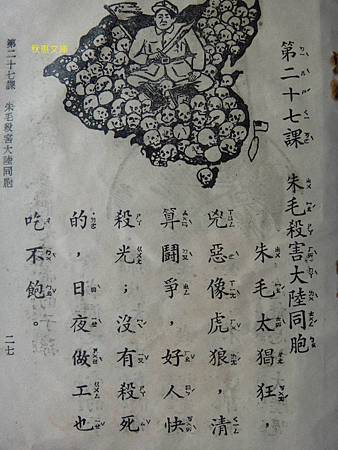 第二十七課
朱毛殺害大陸同胞
朱毛太猖狂，
兇惡像虎狼，清
算鬪爭，好人快
殺光；沒有殺死
的，日夜做工也
吃不飽。
第二十七課　朱毛殺害大陸同胞
二七
秋惠文庫